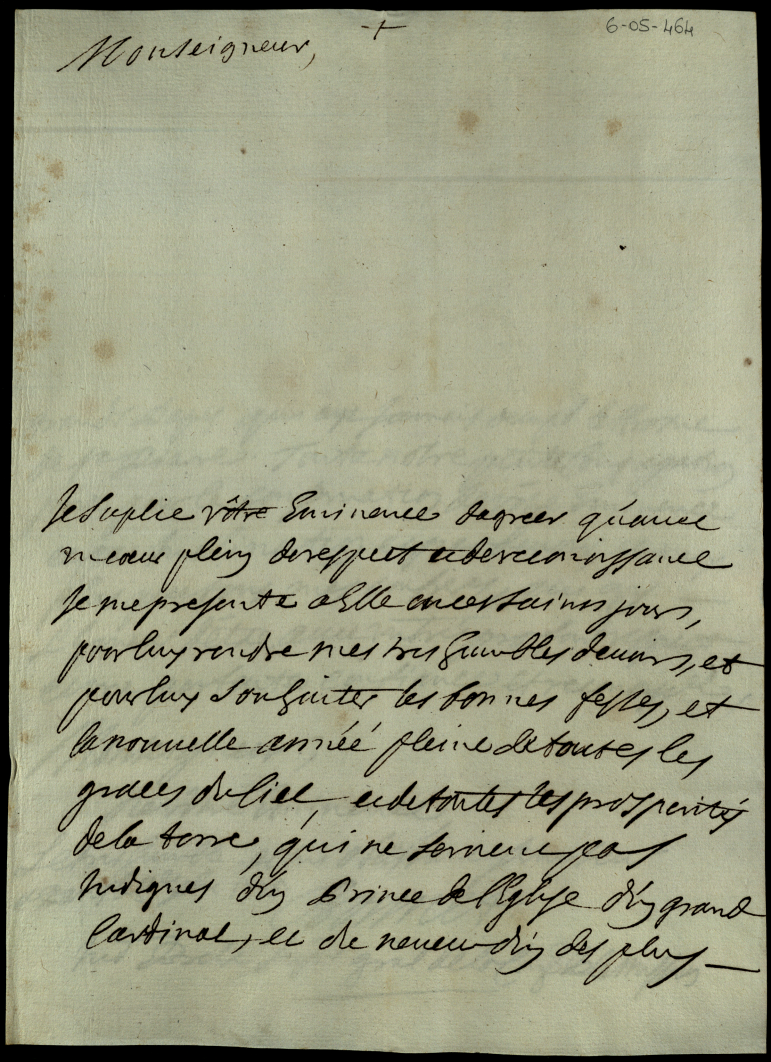 +
6-05-464
Monseigneur,
Je suplie vôtre Eminence dagreer qu'avec
un cœur plein de respect et de reconoissance
Je me presente a Elle en ces saints jours,
pour luy rendre mes tres humbles devoirs, et
pour luy souhaiter les bonnes festes, et
la nouvelle année pleine de toutes les
graces du Ciel, et de toutes les prosperités
de la terre, qui ne seroient pas
Indignes d'un Prince de l'Eglise d'un grand
Cardinal, et de neveu d'un des plus